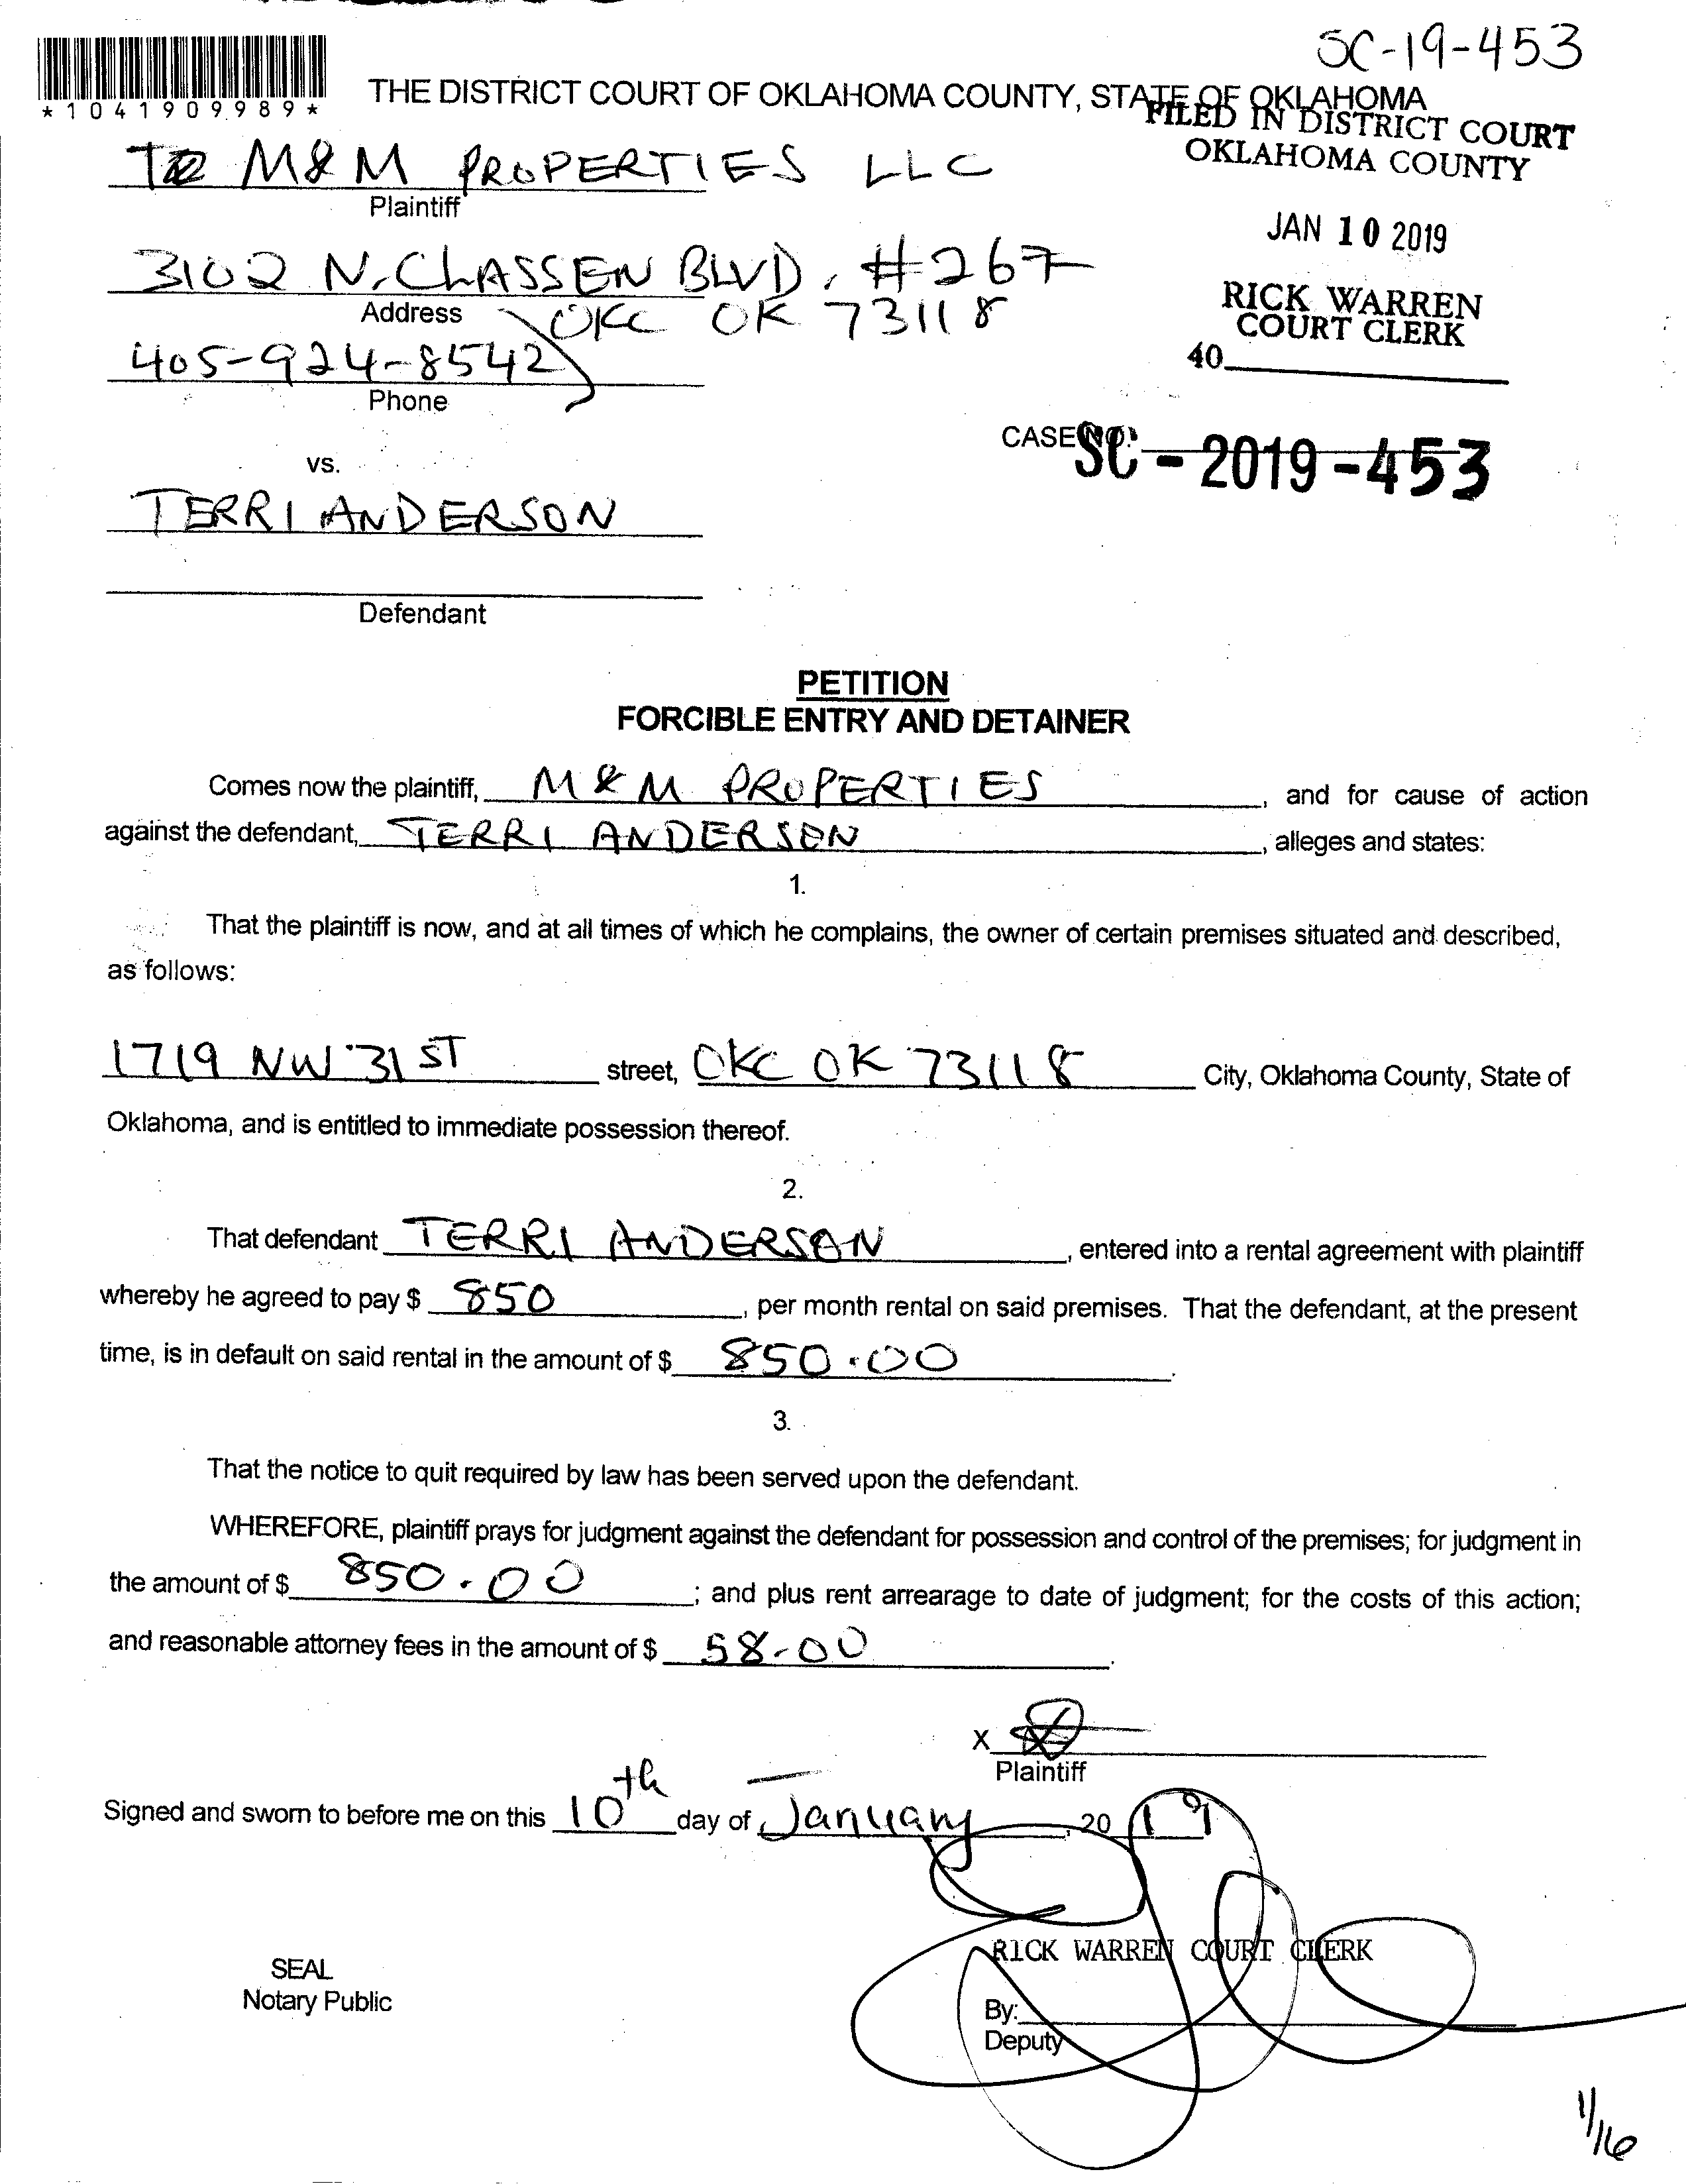 SC-19-453
*1041909989*
THE DISTRICT COURT OF OKLAHOMA COUNTY, STATE OF OKLAHOMA
FILED IN DISTRICT COURT
OKLAHOMA COUNTY
M&M PROPERTIES LLC
Plaintiff
JAN 10 2019
3102 N. CLASSEN BLVD, #267
Address
OKC OK 73118
RICK WARREN
COURT CLERK
405-924-8542
40
Phone
CASE NO.
SC-2019-453
vs.
TERRI ANDERSON
Defendant
PETITION
FORCIBLE ENTRY AND DETAINER
Comes now the plaintiff, M & M PROPERTIES, and for cause of action
against the defendant, TERRI ANDERSON, alleges and states:
1.
That the plaintiff is now, and at all times of which he complains, the owner of certain premises situated and described,
as follows:
1719 NW 31 ST street, OKC OK 73118 City, Oklahoma County, State of
Oklahoma, and is entitled to immediate possession thereof.
2.
That defendant TERRI ANDERSON, entered into a rental agreement with plaintiff
whereby he agreed to pay $ 850, per month rental on said premises. That the defendant, at the present
time, is in default on said rental in the amount of $ 850.00.
3.
That the notice to quit required by law has been served upon the defendant.
WHEREFORE, plaintiff prays for judgment against the defendant for possession and control of the premises; for judgment in
the amount of $ 850.00; and plus rent arrearage to date of judgment; for the costs of this action;
and reasonable attorney fees in the amount of $ 58.00.
X
Plaintiff
Signed and sworn to before me on this 10th day of January, 2019
RICK WARREN COURT CLERK
SEAL
Notary Public
By:
Deputy
1/16